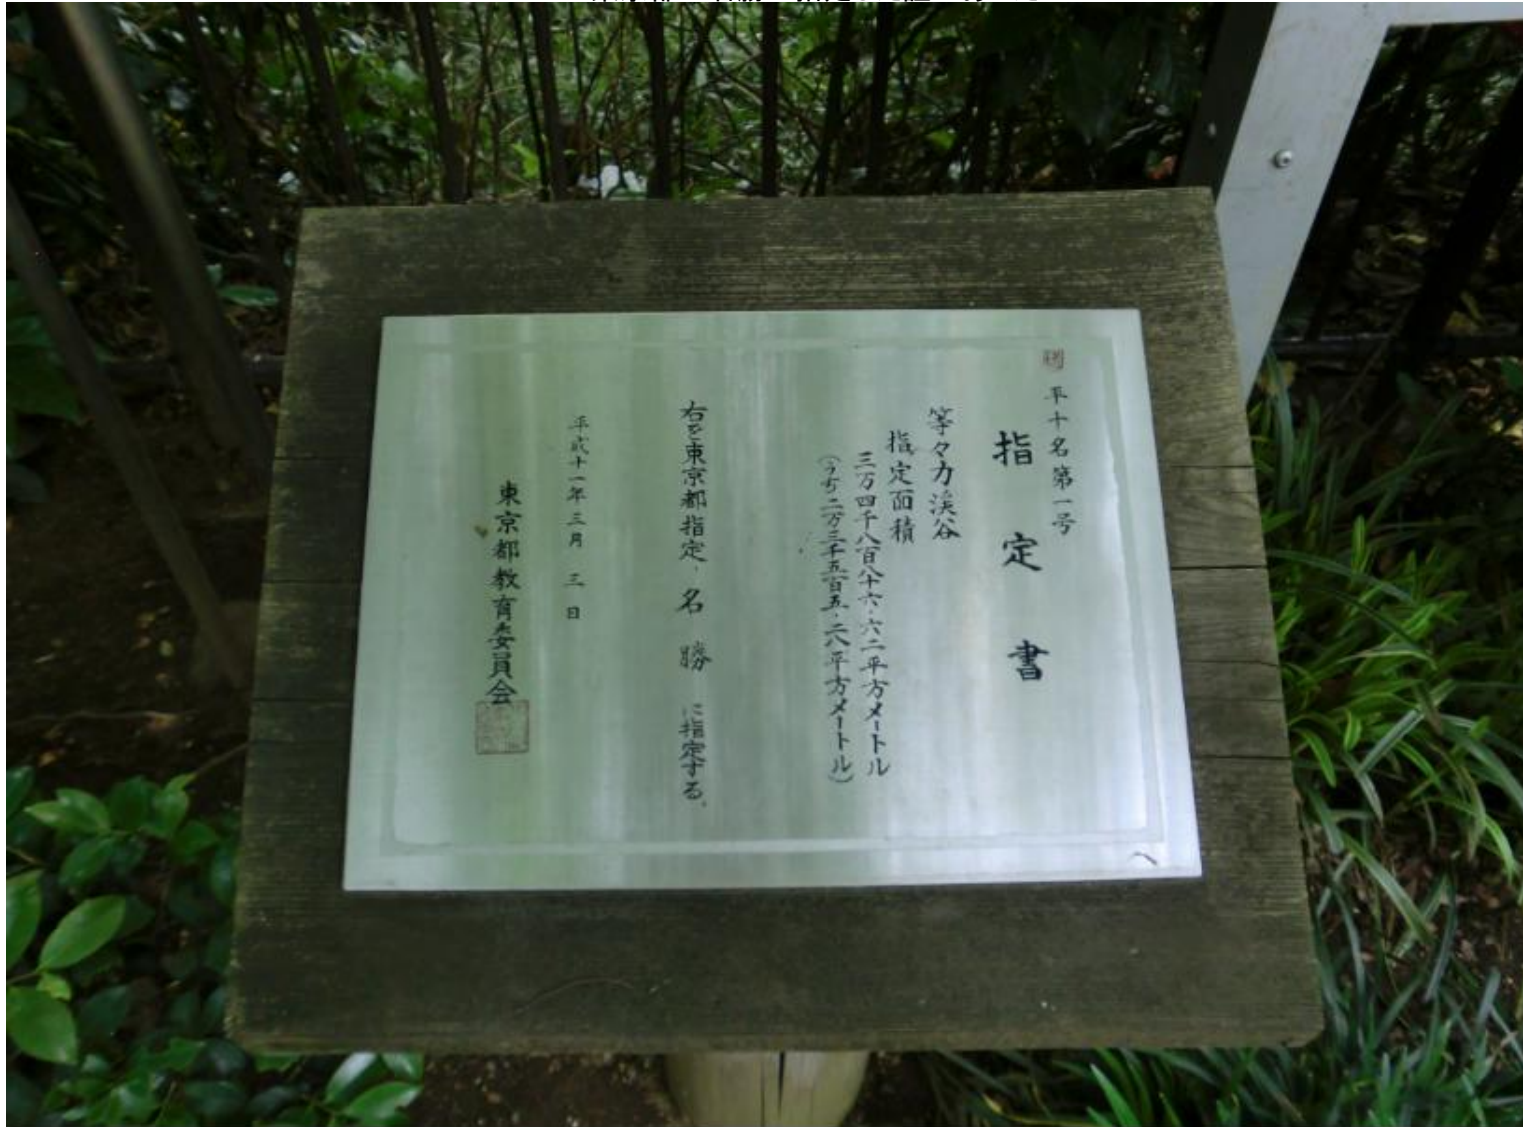 平十名第一号
指定書
等々力渓谷
指定面積
三万四千八百八十六・六二平方メートル
(うち二万三千五百五・二八平方メートル)
右を東京都指定 名勝 に指定する。
平成十一年三月 三 日
東京都教育委員会